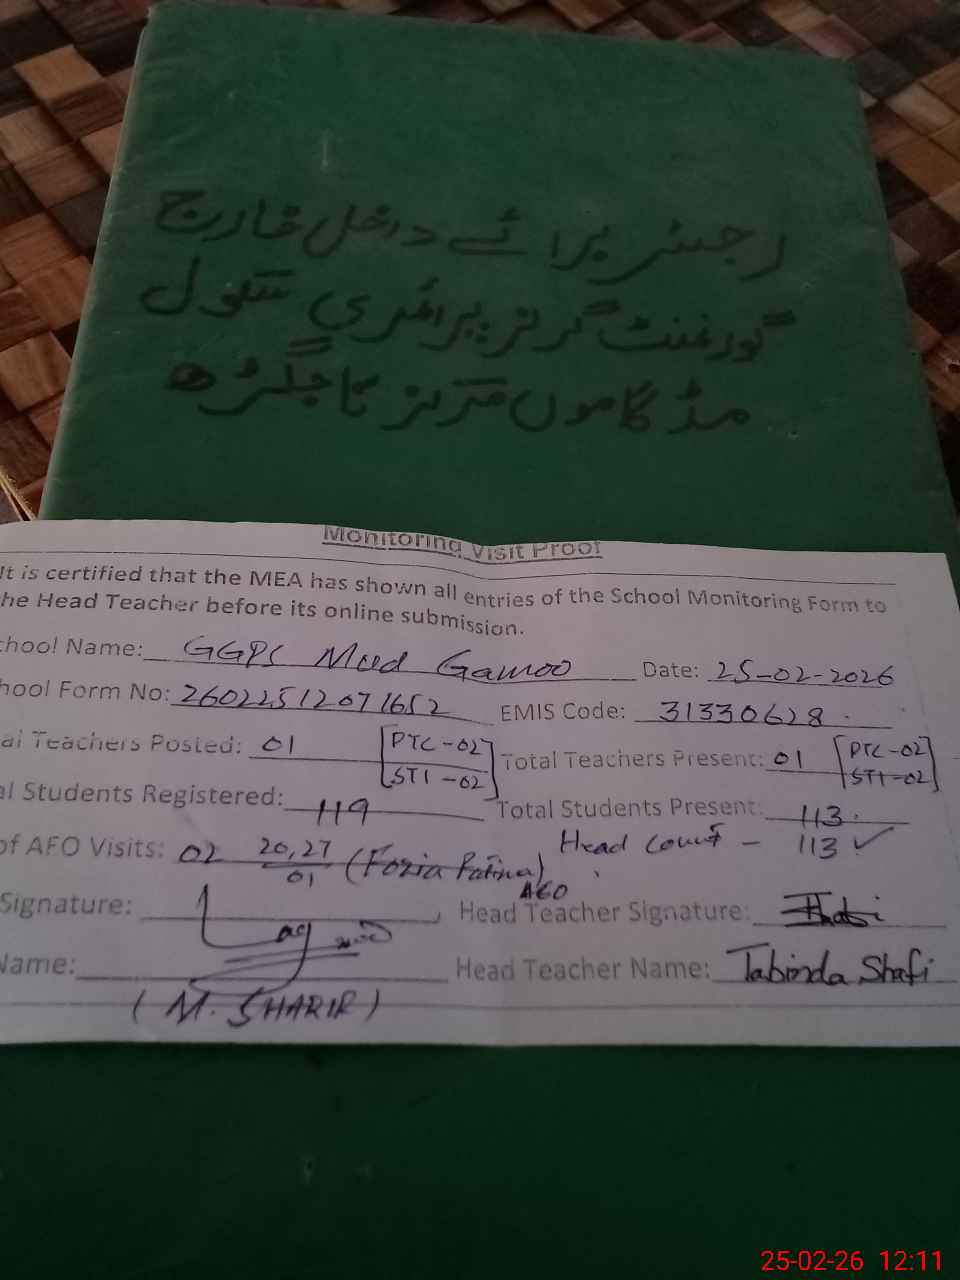 رجسٹر برائے داخل خارج
گورنمنٹ گرلز پرائمری سکول
مڈ گاموں مرکز تاجگڑھ
Monitoring Visit Proof
It is certified that the MEA has shown all entries of the School Monitoring Form to
he Head Teacher before its online submission.
chool Name: GGPS Mud Gamoo Date: 25-02-2026
hool Form No: 26022512071652 EMIS Code: 31330628
al Teachers Posted: 01 [PTC-02 STI-02] Total Teachers Present: 01 [PTC-02 STI-02]
al Students Registered: 119 Total Students Present: 113
Head Count - 113 ✓
of AFO Visits: 02 20,27/01 (Fozia Fatima)
Signature: Head Teacher Signature:
Name: Head Teacher Name: Tabinda Shafi
(M. SHARIF)
25-02-26 12:11